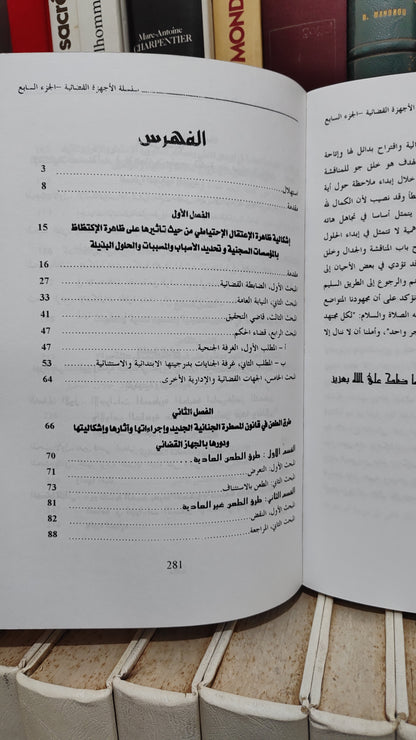 sacré
lhomme
Marc-Antoine
CHARPENTIER
MOND
سلسلة الأجهزة القضائية -الجزء السابع
الفهرس
استهلال 3
مقدمة 8
الفصل الأول
إشكالية ظاهرة الإعتقال الإحتياطي من حيث تأثيرها على ظاهرة الإكتظاظ 15
بالمؤسسات السجنية و تحديد الأسباب والمسببات والحلول البديلة
مقدمة 16
المبحث الأول، الضابطة القضائية 27
المبحث الثاني، النيابة العامة 33
المبحث الثالث، قاضي التحقيق 41
المبحث الرابع، قضاء الحكم 47
أ – المطلب الأول، الغرفة الجنحية 47
ب – المطلب الثاني، غرفة الجنايات بدرجتيها الابتدائية والاستئنافية 53
المبحث الخامس، الجهات القضائية والإدارية الأخرى 64
الفصل الثاني
طرق الطعن في قانون المسطرة الجنائية الجديد وإجراءاتها وآثارها وإشكاليتها 66
ودورها بالجهاز القضائي
القسم الأول : طرق الطعن العادية 70
المبحث الأول، التعرض 71
المبحث الثاني، الطعن بالاستئناف 73
القسم الثاني: طرق الطعن غير العادية 81
المبحث الأول، النقض 82
المبحث الثاني، المراجعة 88
281
الأجهزة القضائية -الجزء السابع
لية واقتراح بدائل لها وإتاحة
هدف هو خلق جو للمناقشة
خلال إبداء ملاحظة حول أية
طأ وقد نصيب لأن الكمال لله
يتمثل أساسا في تجاهل هاته
مية لا تتمثل في إبداء الحلول
ح باب المناقشة والجدال وخلق
قد تؤدي في بعض الأحيان إلى
والرجوع إلى الطريق السليم
ؤكد على أن مجهودنا المتواضع
ه الصلاة والسلام: "لكل مجتهد
جر واحد"، وأملنا أن لا ننال إلا
على الله بعزيز